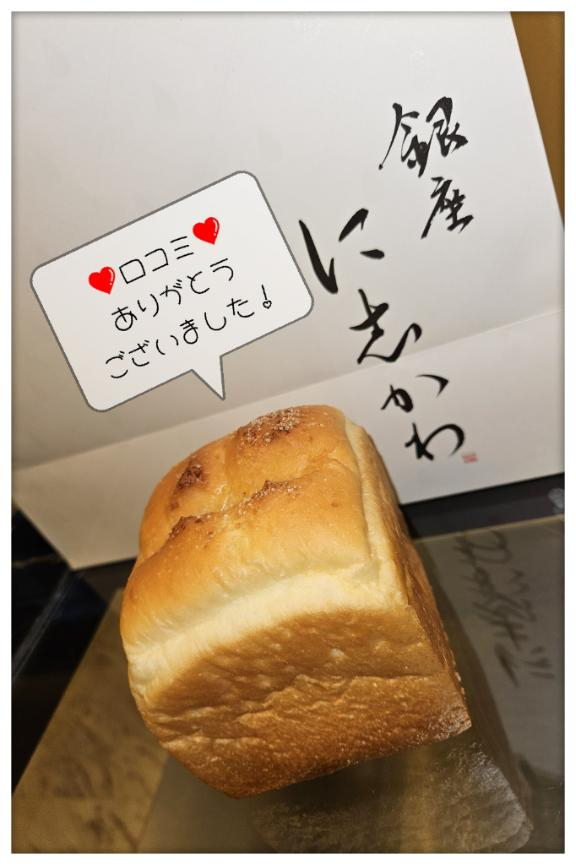 ❤口コミ❤
ありがとう
ございました!
銀座
に志かわ